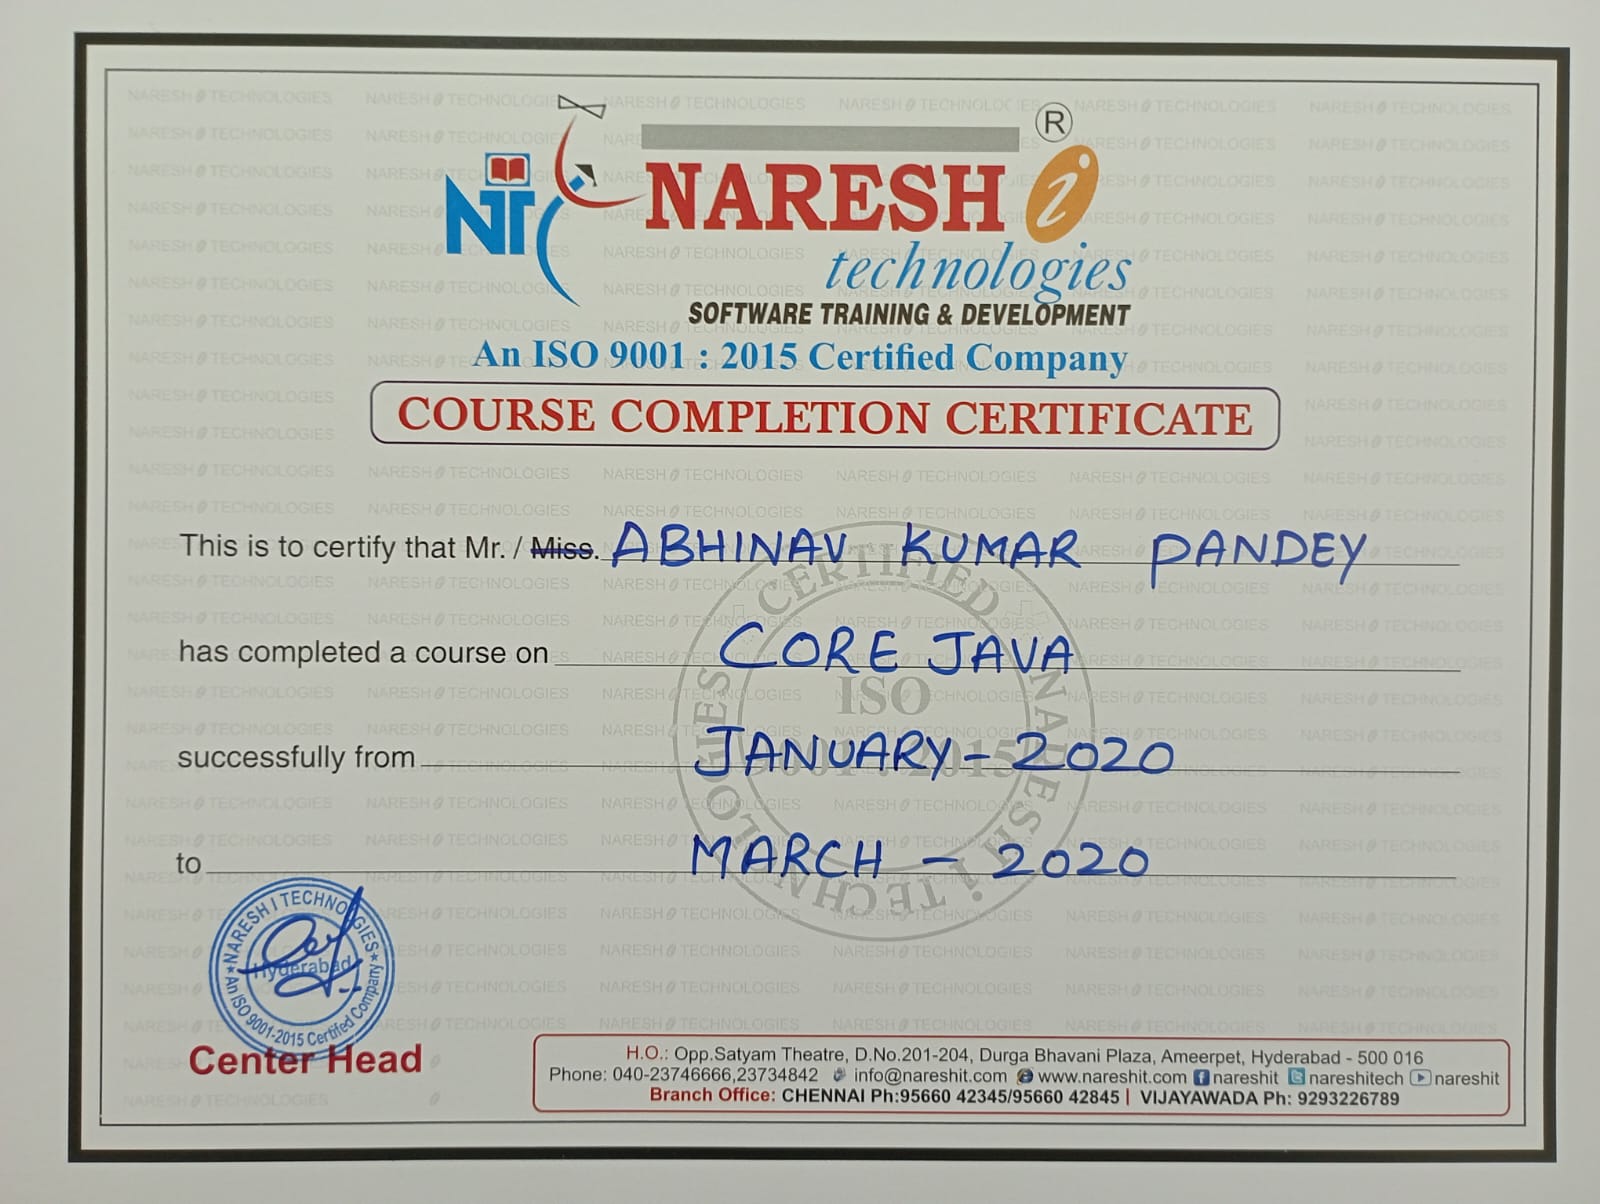 NT
NARESH i ®
technologies
SOFTWARE TRAINING & DEVELOPMENT
An ISO 9001 : 2015 Certified Company
COURSE COMPLETION CERTIFICATE
This is to certify that Mr. / Miss. ABHINAV KUMAR PANDEY
has completed a course on CORE JAVA
successfully from JANUARY - 2020
to MARCH - 2020
CERTIFIED NARESH i TECHNOLOGIES
ISO
9001 : 2015
NARESH I TECHNOLOGIES
Hyderabad
An ISO 9001-2015 Certified Company
Center Head
H.O.: Opp.Satyam Theatre, D.No.201-204, Durga Bhavani Plaza, Ameerpet, Hyderabad - 500 016
Phone: 040-23746666,23734842 info@nareshit.com www.nareshit.com nareshit nareshitech nareshit
Branch Office: CHENNAI Ph:95660 42345/95660 42845 | VIJAYAWADA Ph: 9293226789